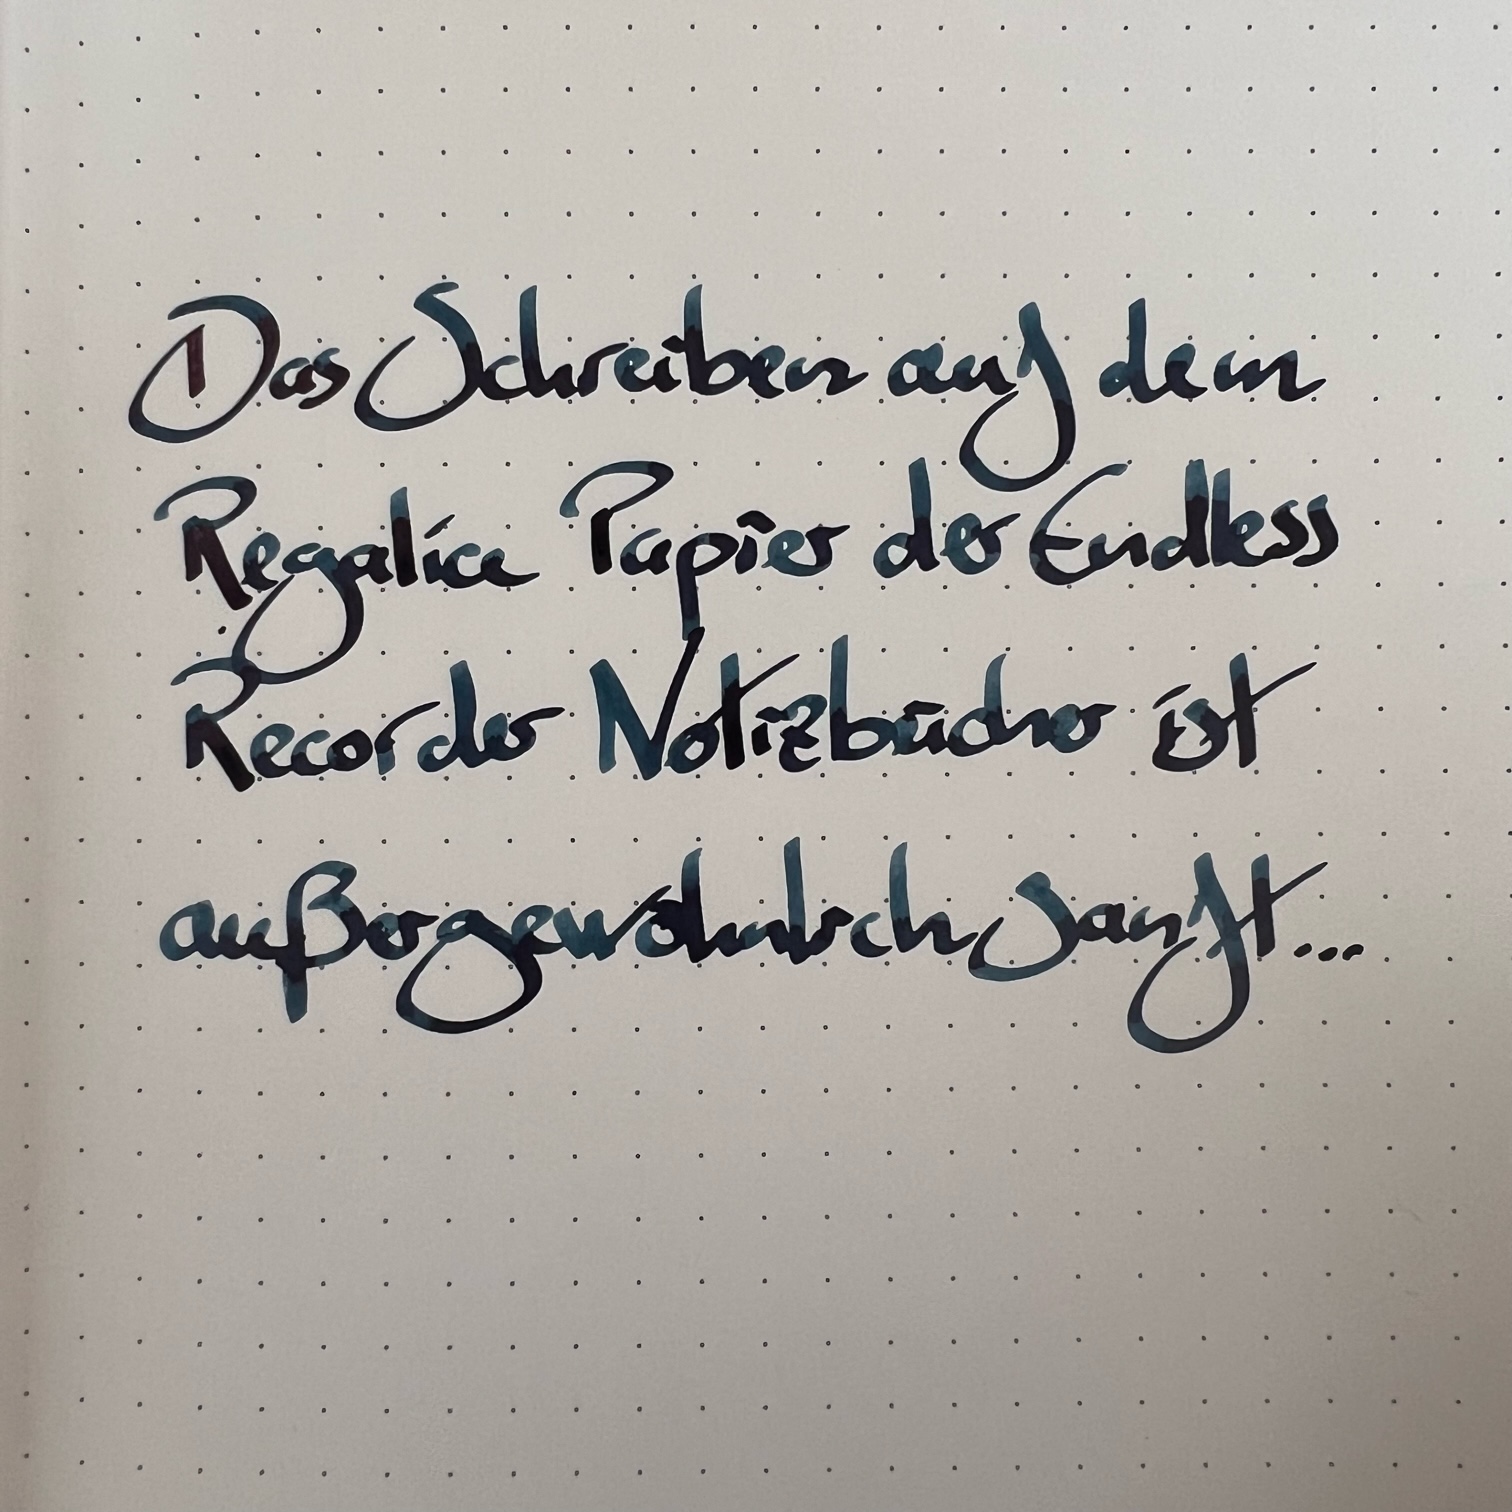 Das Schreiben auf dem
Regalica Papier der Endless
Recorder Notizbücher ist
außergewöhnlich sanft...